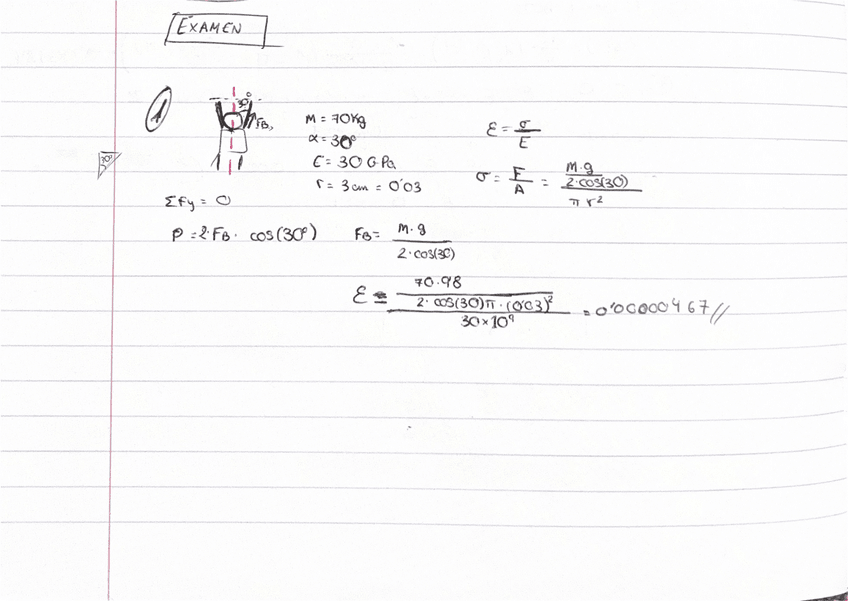 EXAMEN
1
30°
FB,
30°
M = 70Kg
α = 30°
E = 30 GPa
r = 3cm = 0'03
ε = σ / E
σ = F / A = (M·g / 2·cos(30)) / π r²
ΣFy = 0
P = 2·FB · cos(30°)
FB = M·g / 2·cos(30)
ε = (70·98 / 2·cos(30)π·(0'03)²) / 30×10⁹ = 0'00000467//